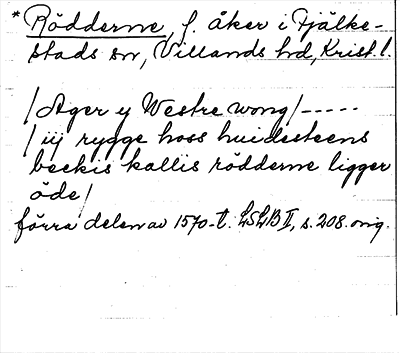 *Rödderne, f. åker i Fjälke-
stads sn, Villands hd, Krist. l.
/Ager y Westre wong/-----
/iij rygge hoss huidesteens
beckis kallis rödderne ligger
öde/
förra delen av 1570-t. LSLB II, s. 208. orig.